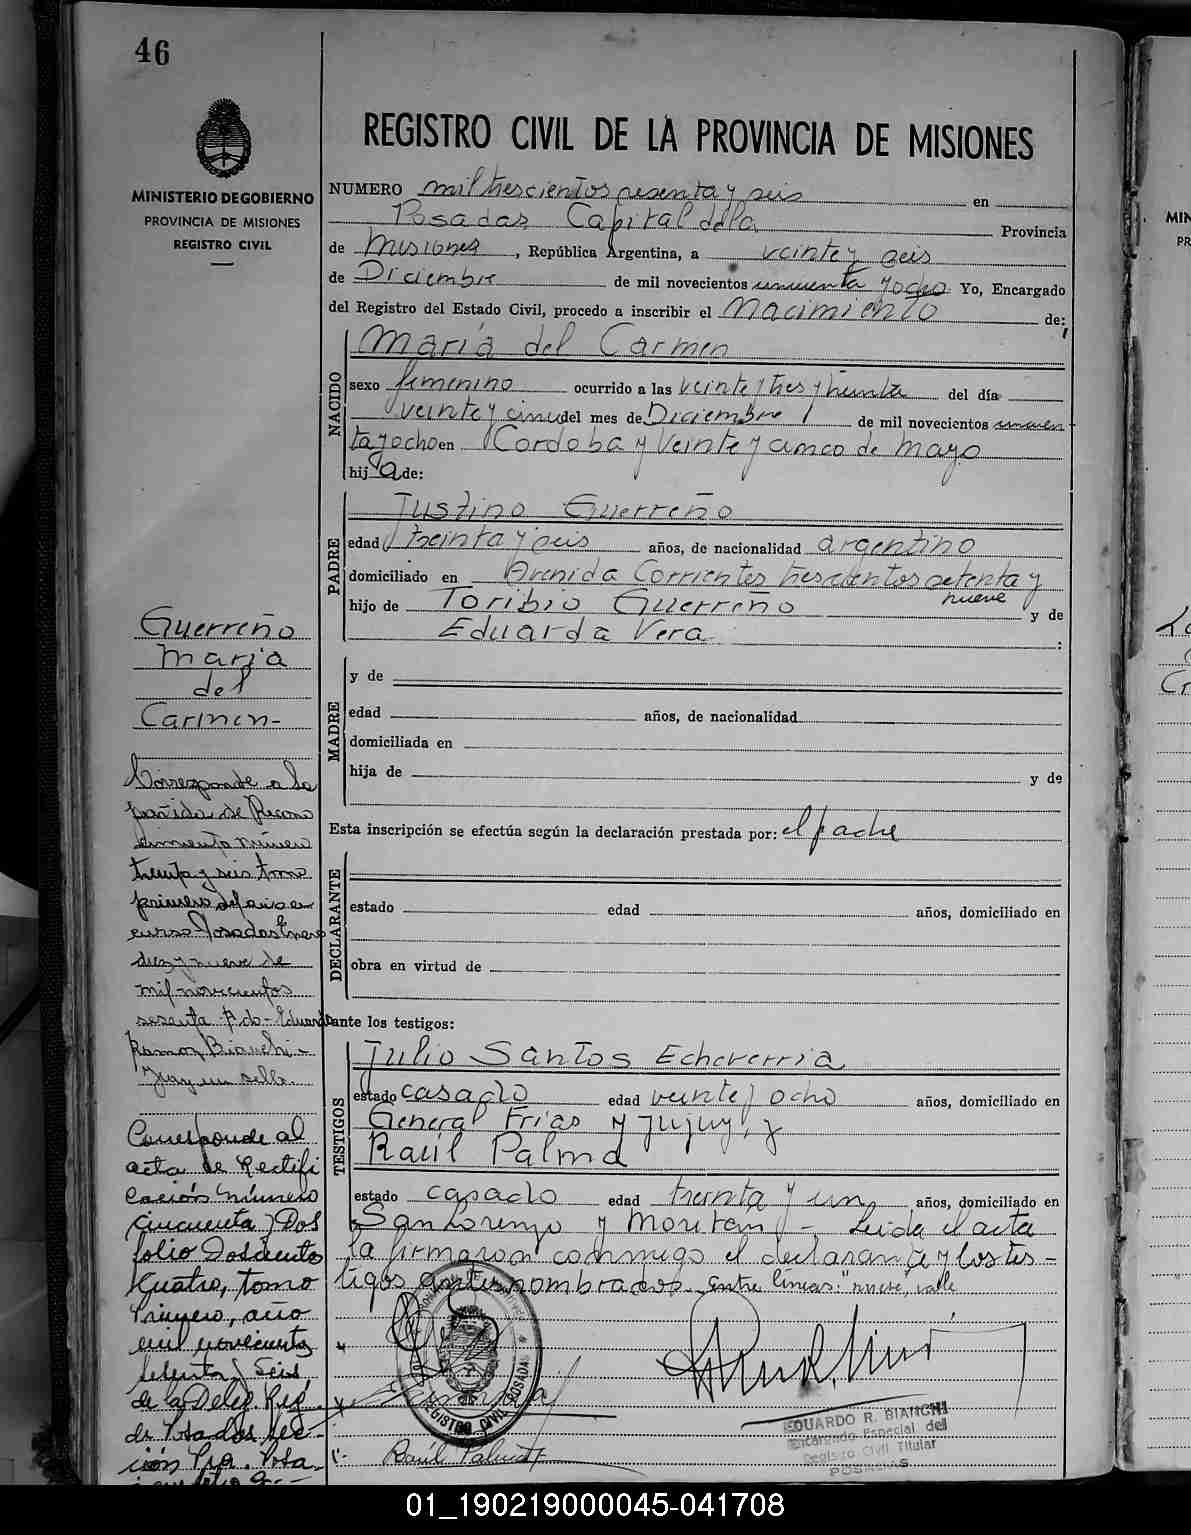 46
MINISTERIO DE GOBIERNO
PROVINCIA DE MISIONES
REGISTRO CIVIL
REGISTRO CIVIL DE LA PROVINCIA DE MISIONES
NUMERO mil trescientos sesenta y seis en
Posadas Capital de la Provincia
de Misiones, República Argentina, a veinte y seis
de Diciembre de mil novecientos cincuenta y ocho Yo, Encargado
del Registro del Estado Civil, procedo a inscribir el Nacimiento de:
NACIDO
María del Carmen
sexo femenino ocurrido a las veinte y tres y treinta del día
veinte y cinco del mes de Diciembre de mil novecientos cincuen
ta y ocho en Cordoba y Veinte y cinco de Mayo
hij a de:
PADRE
Justino Guerreño
edad treinta y seis años, de nacionalidad argentino
domiciliado en Avenida Corrientes trescientos setenta y
nueve
hijo de Toribio Guerreño y de
Eduarda Vera :
MADRE
y de
edad años, de nacionalidad
domiciliada en
hija de y de
Esta inscripción se efectúa según la declaración prestada por: el padre
DECLARANTE
estado edad años, domiciliado en
obra en virtud de
ante los testigos:
TESTIGOS
Julio Santos Echeverria
estado casado edad veinte y ocho años, domiciliado en
General Frias y Jujuy, y
Raúl Palma
estado casado edad treinta y un años, domiciliado en
San Lorenzo y Moritan - Leida el acta
la firmaron conmigo el declarante y los tes-
tigos antes nombrados. Entre lineas: "nueve", vale
Guerreño
Maria
del
Carmen-
Corresponde a la
partida de Recono
cimiento número
treinta y seis tomo
primero del año en
curso Posadas Enero
diez y nueve de
mil novecientos
sesenta Fdo- Eduardo
Ramon Bianchi-
Hay un sello.
Corresponde al
acta de Rectifi
cación número
cincuenta y Dos
folio Doscientos
Cuatro, tomo
Primero, año
mil novecientos
setenta y Seis,
de la Deleg. Reg.
de Posadas Sec-
ción 1ra. Posa.
REGISTRO CIVIL POSADAS
Raúl Palma
EDUARDO R. BIANCHI
Encargado Especial del
Registro Civil Titular
POSADAS
MIN
PR
01_190219000045-041708